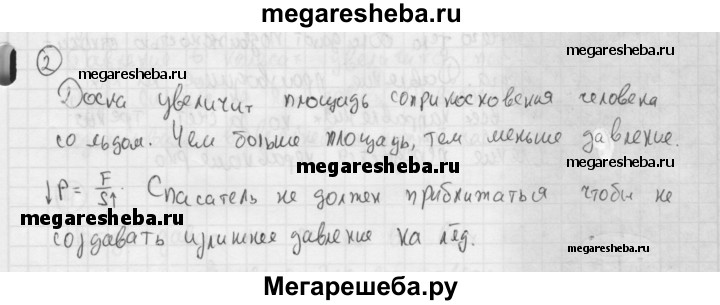 megaresheba.ru
②
megaresheba.ru
megaresheba.ru
Доска увеличит площадь соприкосновения человека
со льдом. Чем больше площадь, тем меньше давление.
megaresheba.ru
megaresheba.ru
↓P = F/S↑. Спасатель не должен приближаться чтобы не
megaresheba.ru
создавать излишнее давление на лёд.
megaresheba.ru
Мегарешеба.ру